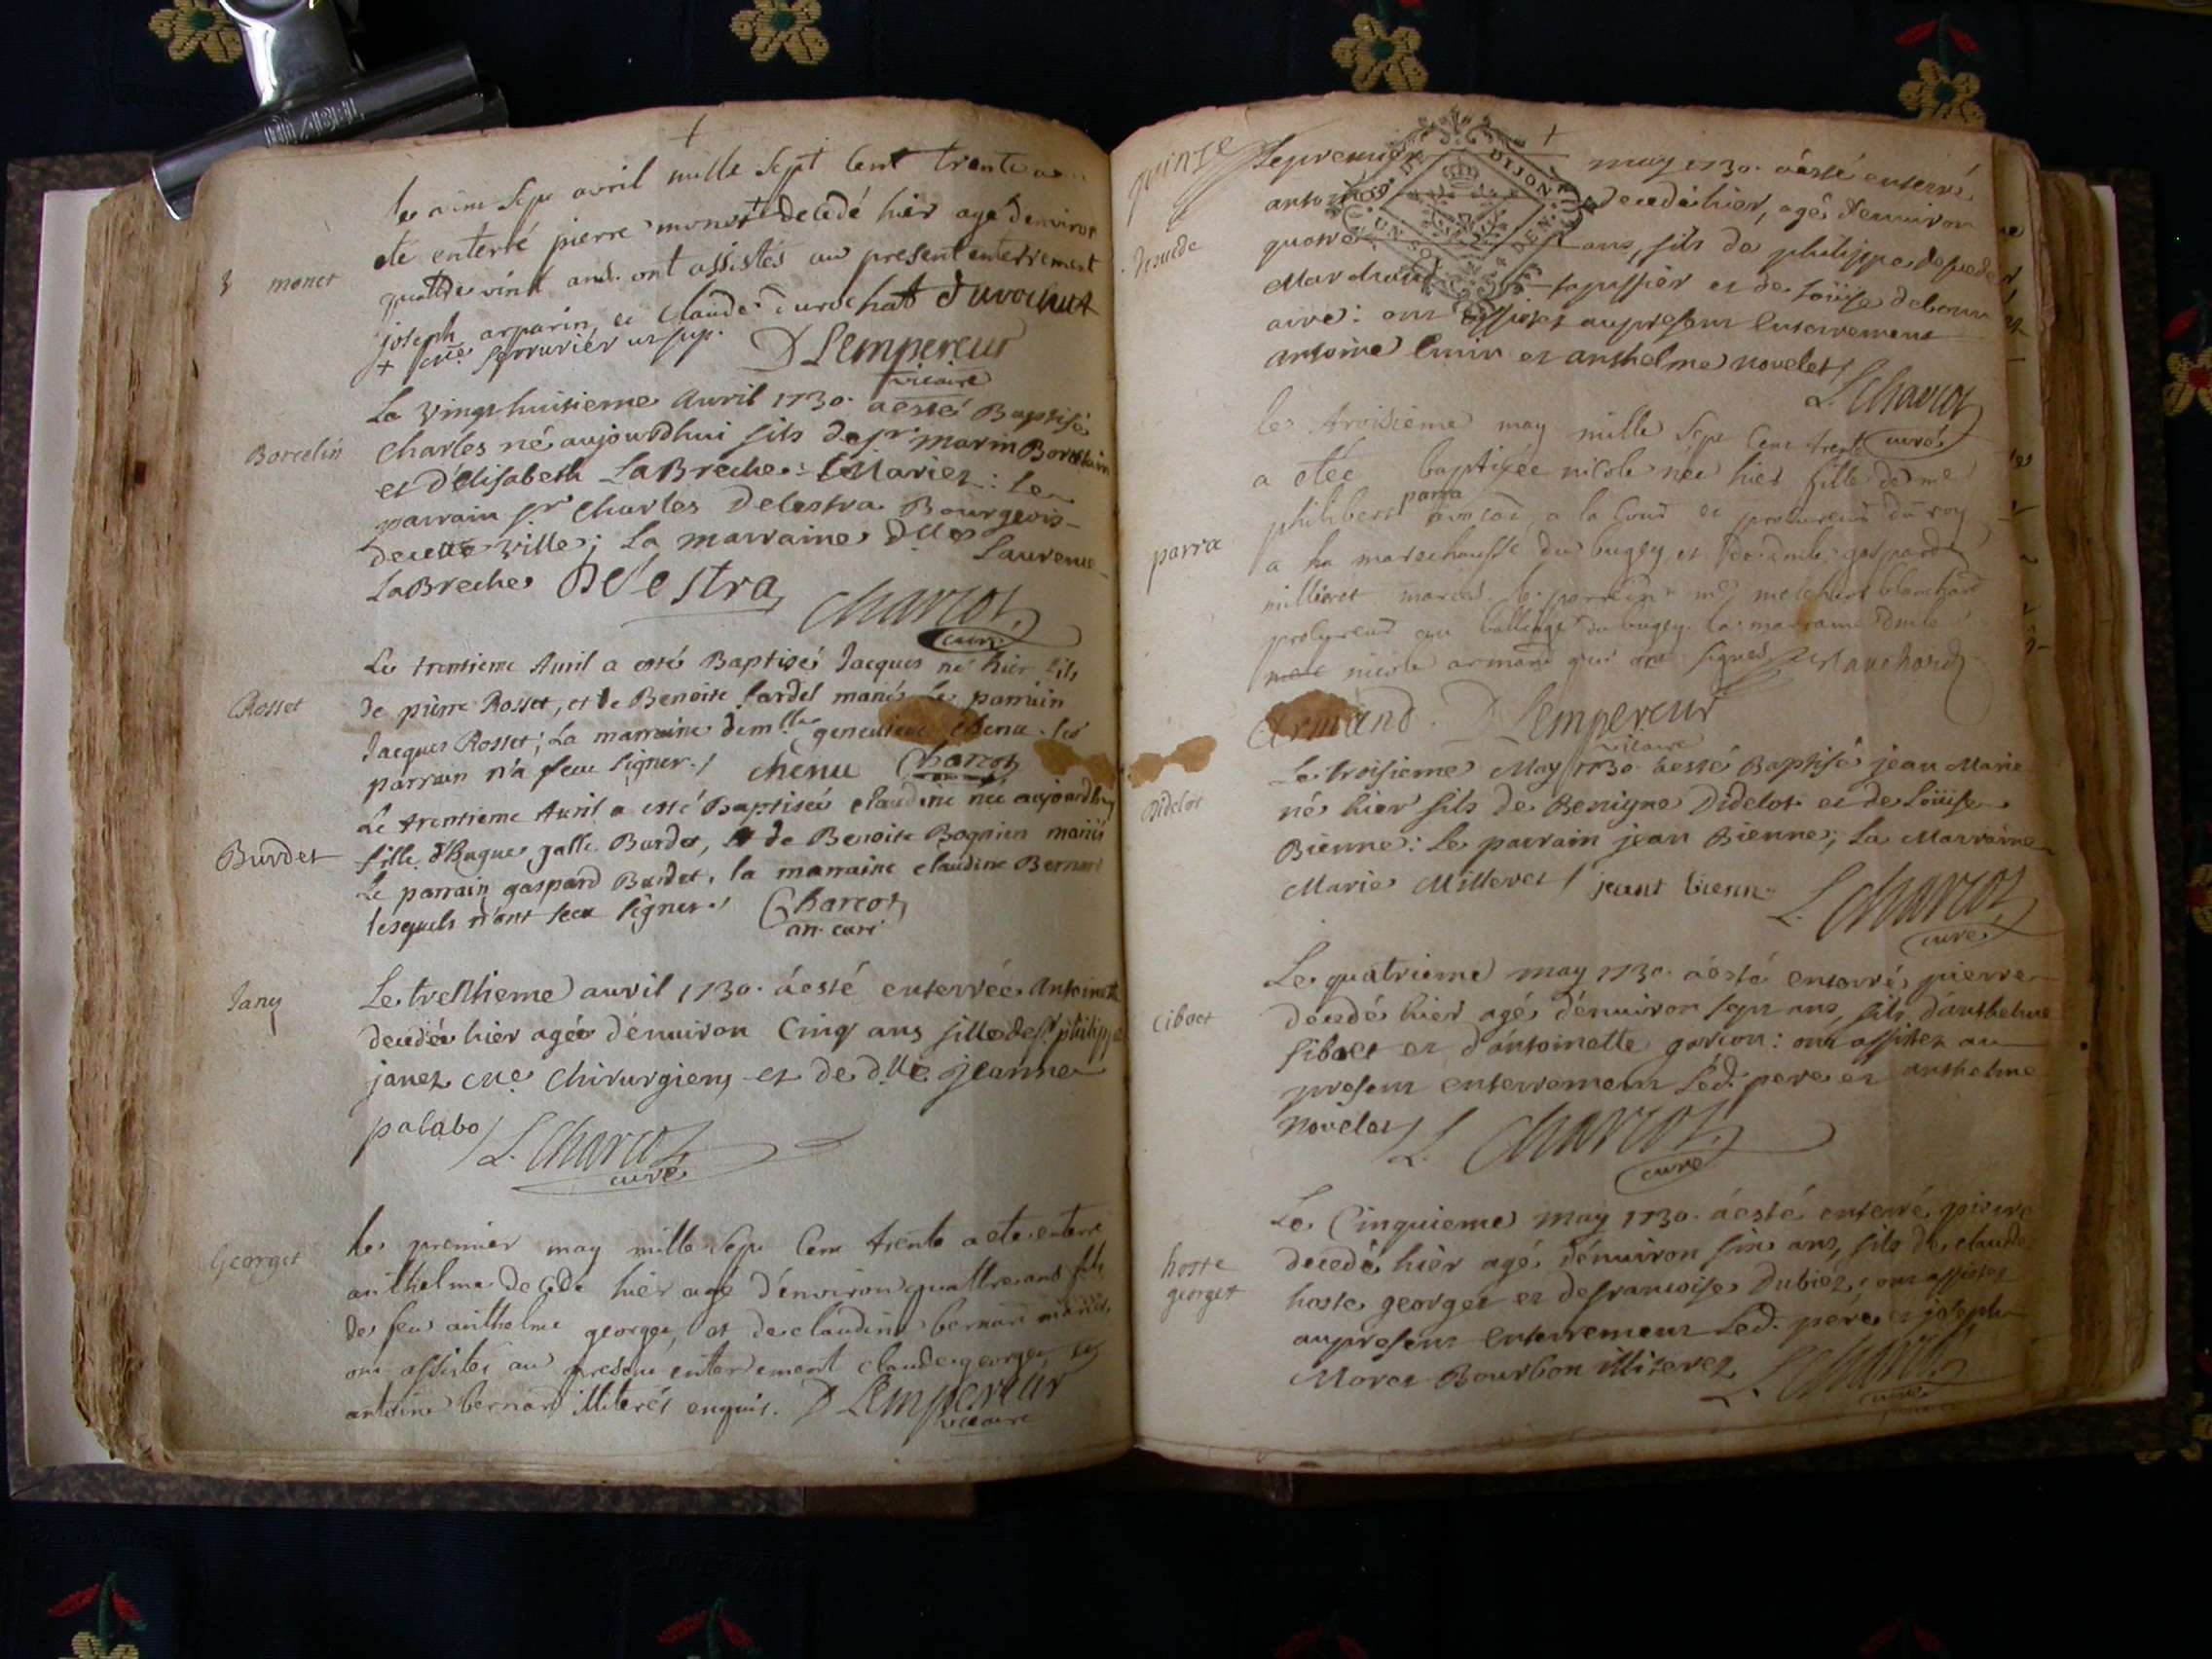 monet
avril mille sept cent trente a
été enterré pierre monet decedé hier agé d'environ
quattre vint ans. ont assistés au present enterrement
joseph arparin et Claude durochat durochat
+ me serrurier
D Lempereur
vicaire
Borcelin
Le vingt huitieme Avril 1730. a esté Baptisé
Charles né aujourdhui fils de sr marin
et d'Elisabeth LaBreche: Mariez: Le
parrain sr Charles Delestra Bourgeois
de cette ville; La marraine dlle Laurence
LaBreche Delestra
Charcot
curé
Rosset
Le trentieme Avril a esté Baptisé Jacques né hier fils
de pierre Rosset, et de Benoite fardel mariés Le parrain
Jacques Rosset; La marraine demlle genevieve chenu. les
parrain n'a sceu signer./ chenu Charcot
Burdet
Le trentieme Avril a esté Baptisée claudine née aujourdhuy
fille d'Hugue galle Burdet, et de Benoite Bognien mariés
Le parrain gaspard Burdet, la marraine claudine Bernard
lesquels n'ont sceu signer./ Charcot
an. curé
Jany
Le trentieme avril 1730. a esté enterrée Antoinette
decedée hier agée d'environ Cinq ans fille de sr philippe
janez me Chirurgien et de dlle jeanne
palabo/ L. Charcot
curé
Georget
le premier may mille sept cent trente a ete enterré
anthelme decede hier agé d'environ quattre ans fils
de feu anthelme georget, et de claudine bernard mariés
ont assistés au present enterrement claude georget et
antoine bernard illiterés enquis. D Lempereur
vicaire
quinze
Le premier may 1730. a esté enterré
DIJON
UN SOL
4 DEN.
antoine decedé hier, agé d'environ
quatre ans, fils de philippe
Marchand tapissier et de Loüise
ont assistez au present Enterrement
antoine et anthelme novelet/
L. Charcot
curé
parra
le troisieme may mille sept cent trente
a etée baptisée nicole née hier fille de me
philibert parra avocat a la Cour et procureur du roy
a la marechaussé du bugey, et de dmle gasparde
millieret mariés. le parrain me melchior blanchard
procureur au balliage du bugey. la marraine dmle
nicole armand qui ont signés Blanchard
Armand. D Lempereur
vicaire
Didelot
Le troisieme May 1730. a esté Baptisé jean Marie
né hier fils de Benigne Didelot et de Loüise
Bienne: Le parrain jean Bienne; La Marraine
Marie Milleret/ jeant bienne L. Charcot
curé
Ciboet
Le quatrieme may 1730. a esté enterré pierre
decedé hier agé d'environ sept ans, fils d'anthelme
Siboet et d'antoinette garcon: ont assistez au
present enterrement led. pere et anthelme
Novelet/ L. Charcot
curé
hoste
georget
Le Cinquieme may 1730. a esté enterré pierre
decedé hier agé d'environ six ans, fils de claude
hoste georget et de francoise Dubiez; ont assistez
au present Enterrement led. pere et joseph
Morer Bourbon illiterez L. Charcot
curé